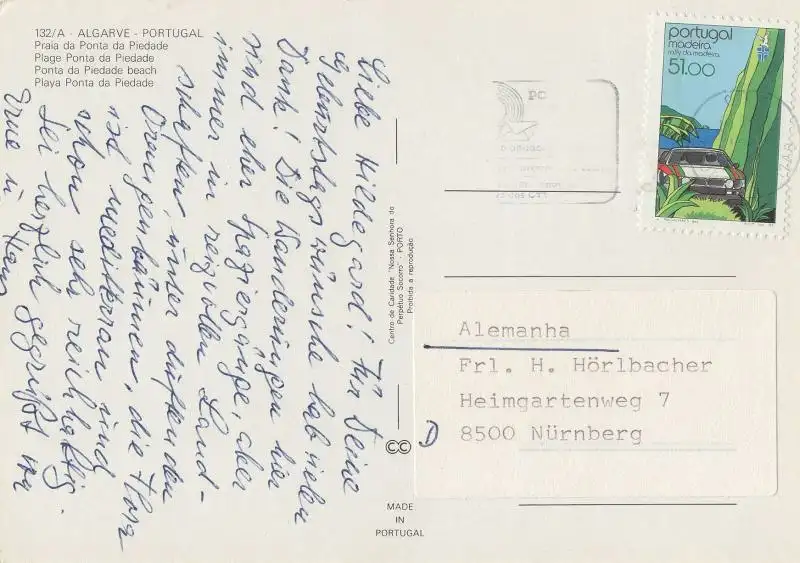 132/A - ALGARVE - PORTUGAL
Praia da Ponta da Piedade
Plage Ponta da Piedade
Ponta da Piedade beach
Playa Ponta da Piedade
Liebe Hildegard! Für Deine
Geburtstagswünsche hab vielen
Dank! Die Wanderungen hier
sind eher Spaziergänge, aber
immer in reizvollen Land-
schaften, unter duftenden
Orangenbäumen, die Flora
ist mediterran und
schon sehr reichhaltig.
Sei herzlich gegrüßt von
Centro de Caridade "Nossa Senhora do
Perpétuo Socorro" - PORTO
Proibida a reprodução
CC
MADE
IN
PORTUGAL
portugal
madeira
rally da madeira
51.00
Alemanha
Frl. H. Hörlbacher
Heimgartenweg 7
D 8500 Nürnberg